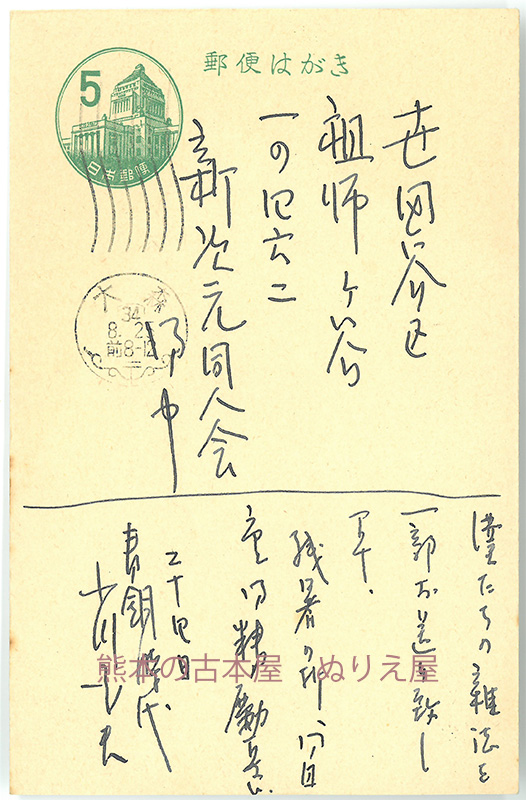 郵便はがき
5
日本郵便
大森
34
8. 2
前8-12
世田谷区
祖師ヶ谷
一の四六二
新次元同人会
御中
僕たちの雑誌を
一部お送り致し
ます。
残暑の折
二十四日
青銅時代
熊本の古本屋 ぬりえ屋